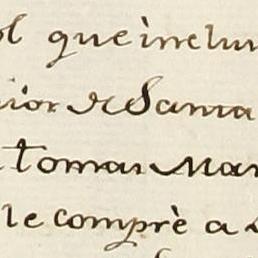 ol que inclui
ior de Santa
Tomas Mar
le comprè a